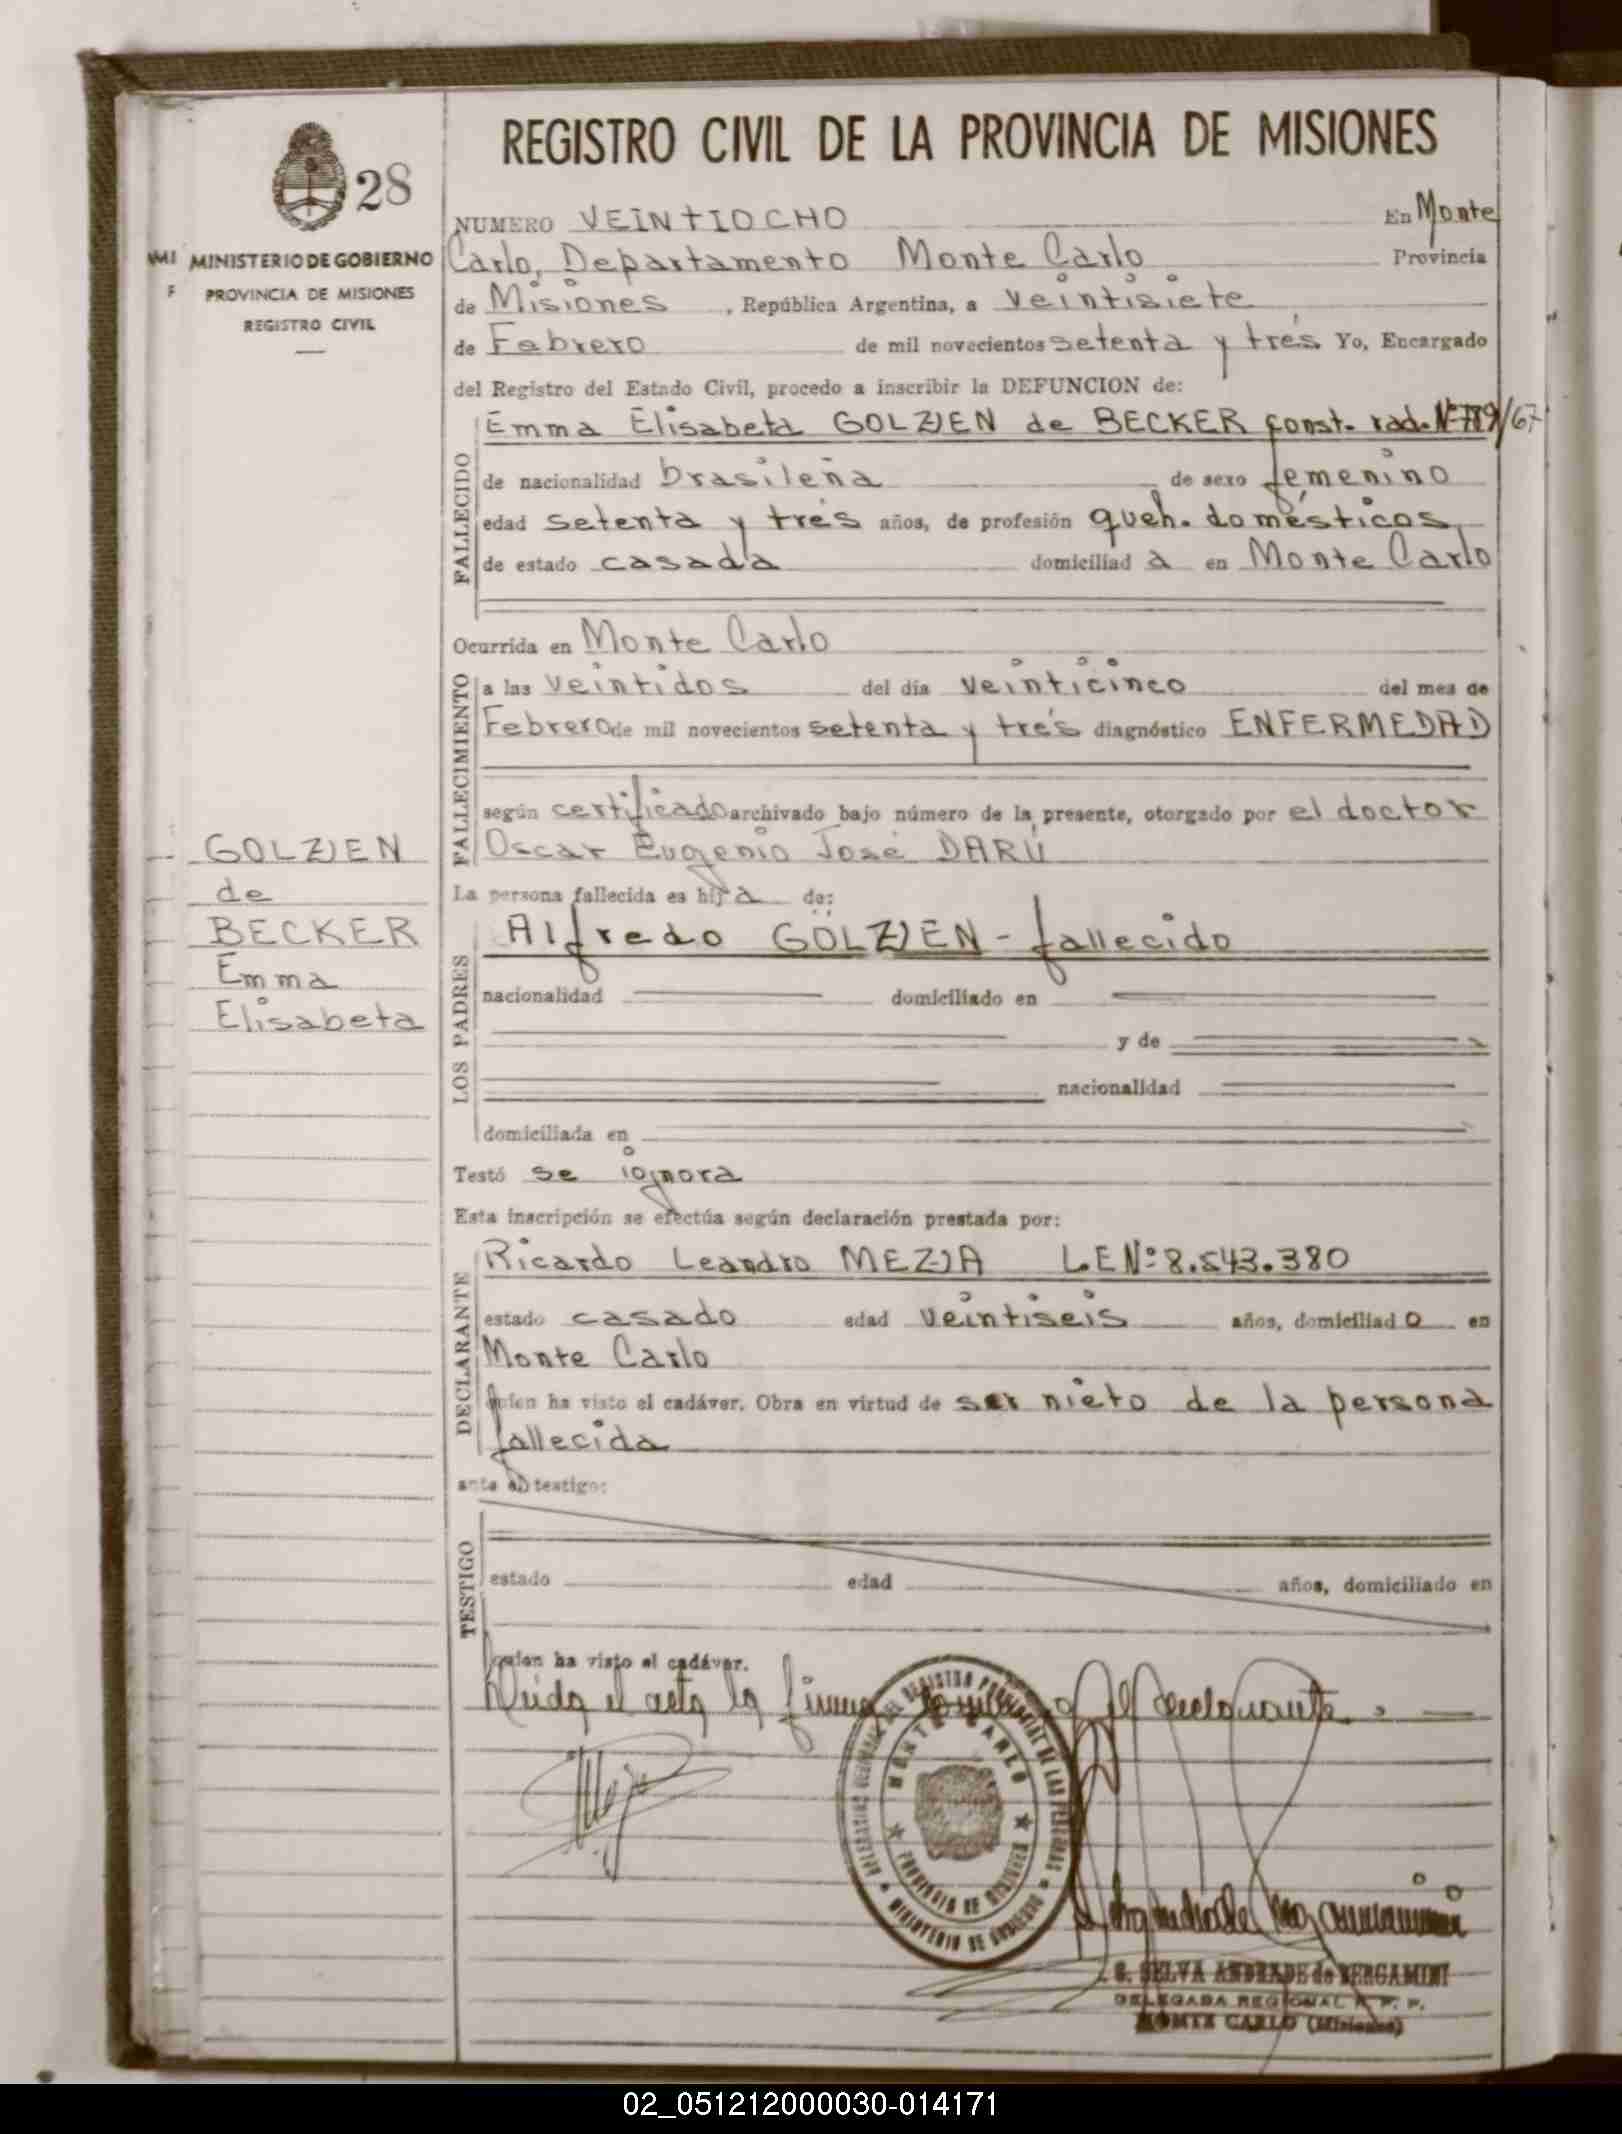 REGISTRO CIVIL DE LA PROVINCIA DE MISIONES
28
MINISTERIO DE GOBIERNO
PROVINCIA DE MISIONES
REGISTRO CIVIL
NUMERO VEINTIOCHO En Monte
Carlo, Departamento Monte Carlo Provincia
de Misiones, República Argentina, a veintisiete
de Febrero de mil novecientos setenta y trés Yo, Encargado
del Registro del Estado Civil, procedo a inscribir la DEFUNCION de:
Emma Elisabeta GOLZIEN de BECKER const. rad. Nº 789/67
FALLECIDO
de nacionalidad brasileña de sexo femenino
edad setenta y trés años, de profesión queh. domésticos
de estado casada domiciliad a en Monte Carlo
Ocurrida en Monte Carlo
FALLECIMIENTO
a las veintidos del día veinticinco del mes de
Febrero de mil novecientos setenta y trés diagnóstico ENFERMEDAD
según certificado archivado bajo número de la presente, otorgado por el doctor
Oscar Eugenio José DARÚ
La persona fallecida es hija de:
LOS PADRES
Alfredo GÖLZIEN - fallecido
nacionalidad domiciliado en
y de
nacionalidad
domiciliada en
Testó se ignora
Esta inscripción se efectúa según declaración prestada por:
DECLARANTE
Ricardo Leandro MEZIA L.E Nº 8.543.380
estado casado edad veintiseis años, domiciliado en
Monte Carlo
quien ha visto el cadáver. Obra en virtud de ser nieto de la persona
fallecida
ante el testigo:
TESTIGO
estado edad años, domiciliado en
quien ha visto el cadáver.
Leída el acta la firma conmigo el declarante.
GOLZIEN
de
BECKER
Emma
Elisabeta
MONTE CARLO
PROVINCIA DE MISIONES
MINISTERIO DE GOBIERNO
G. SELVA ANDRADE de BERGAMINI
DELEGADA REGIONAL R. P. P.
MONTE CARLO (Misiones)
02_051212000030-014171